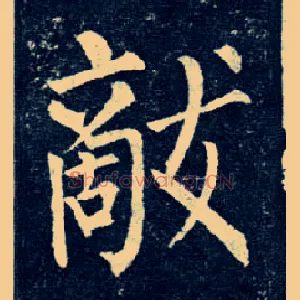 敵
Shufawang.CN